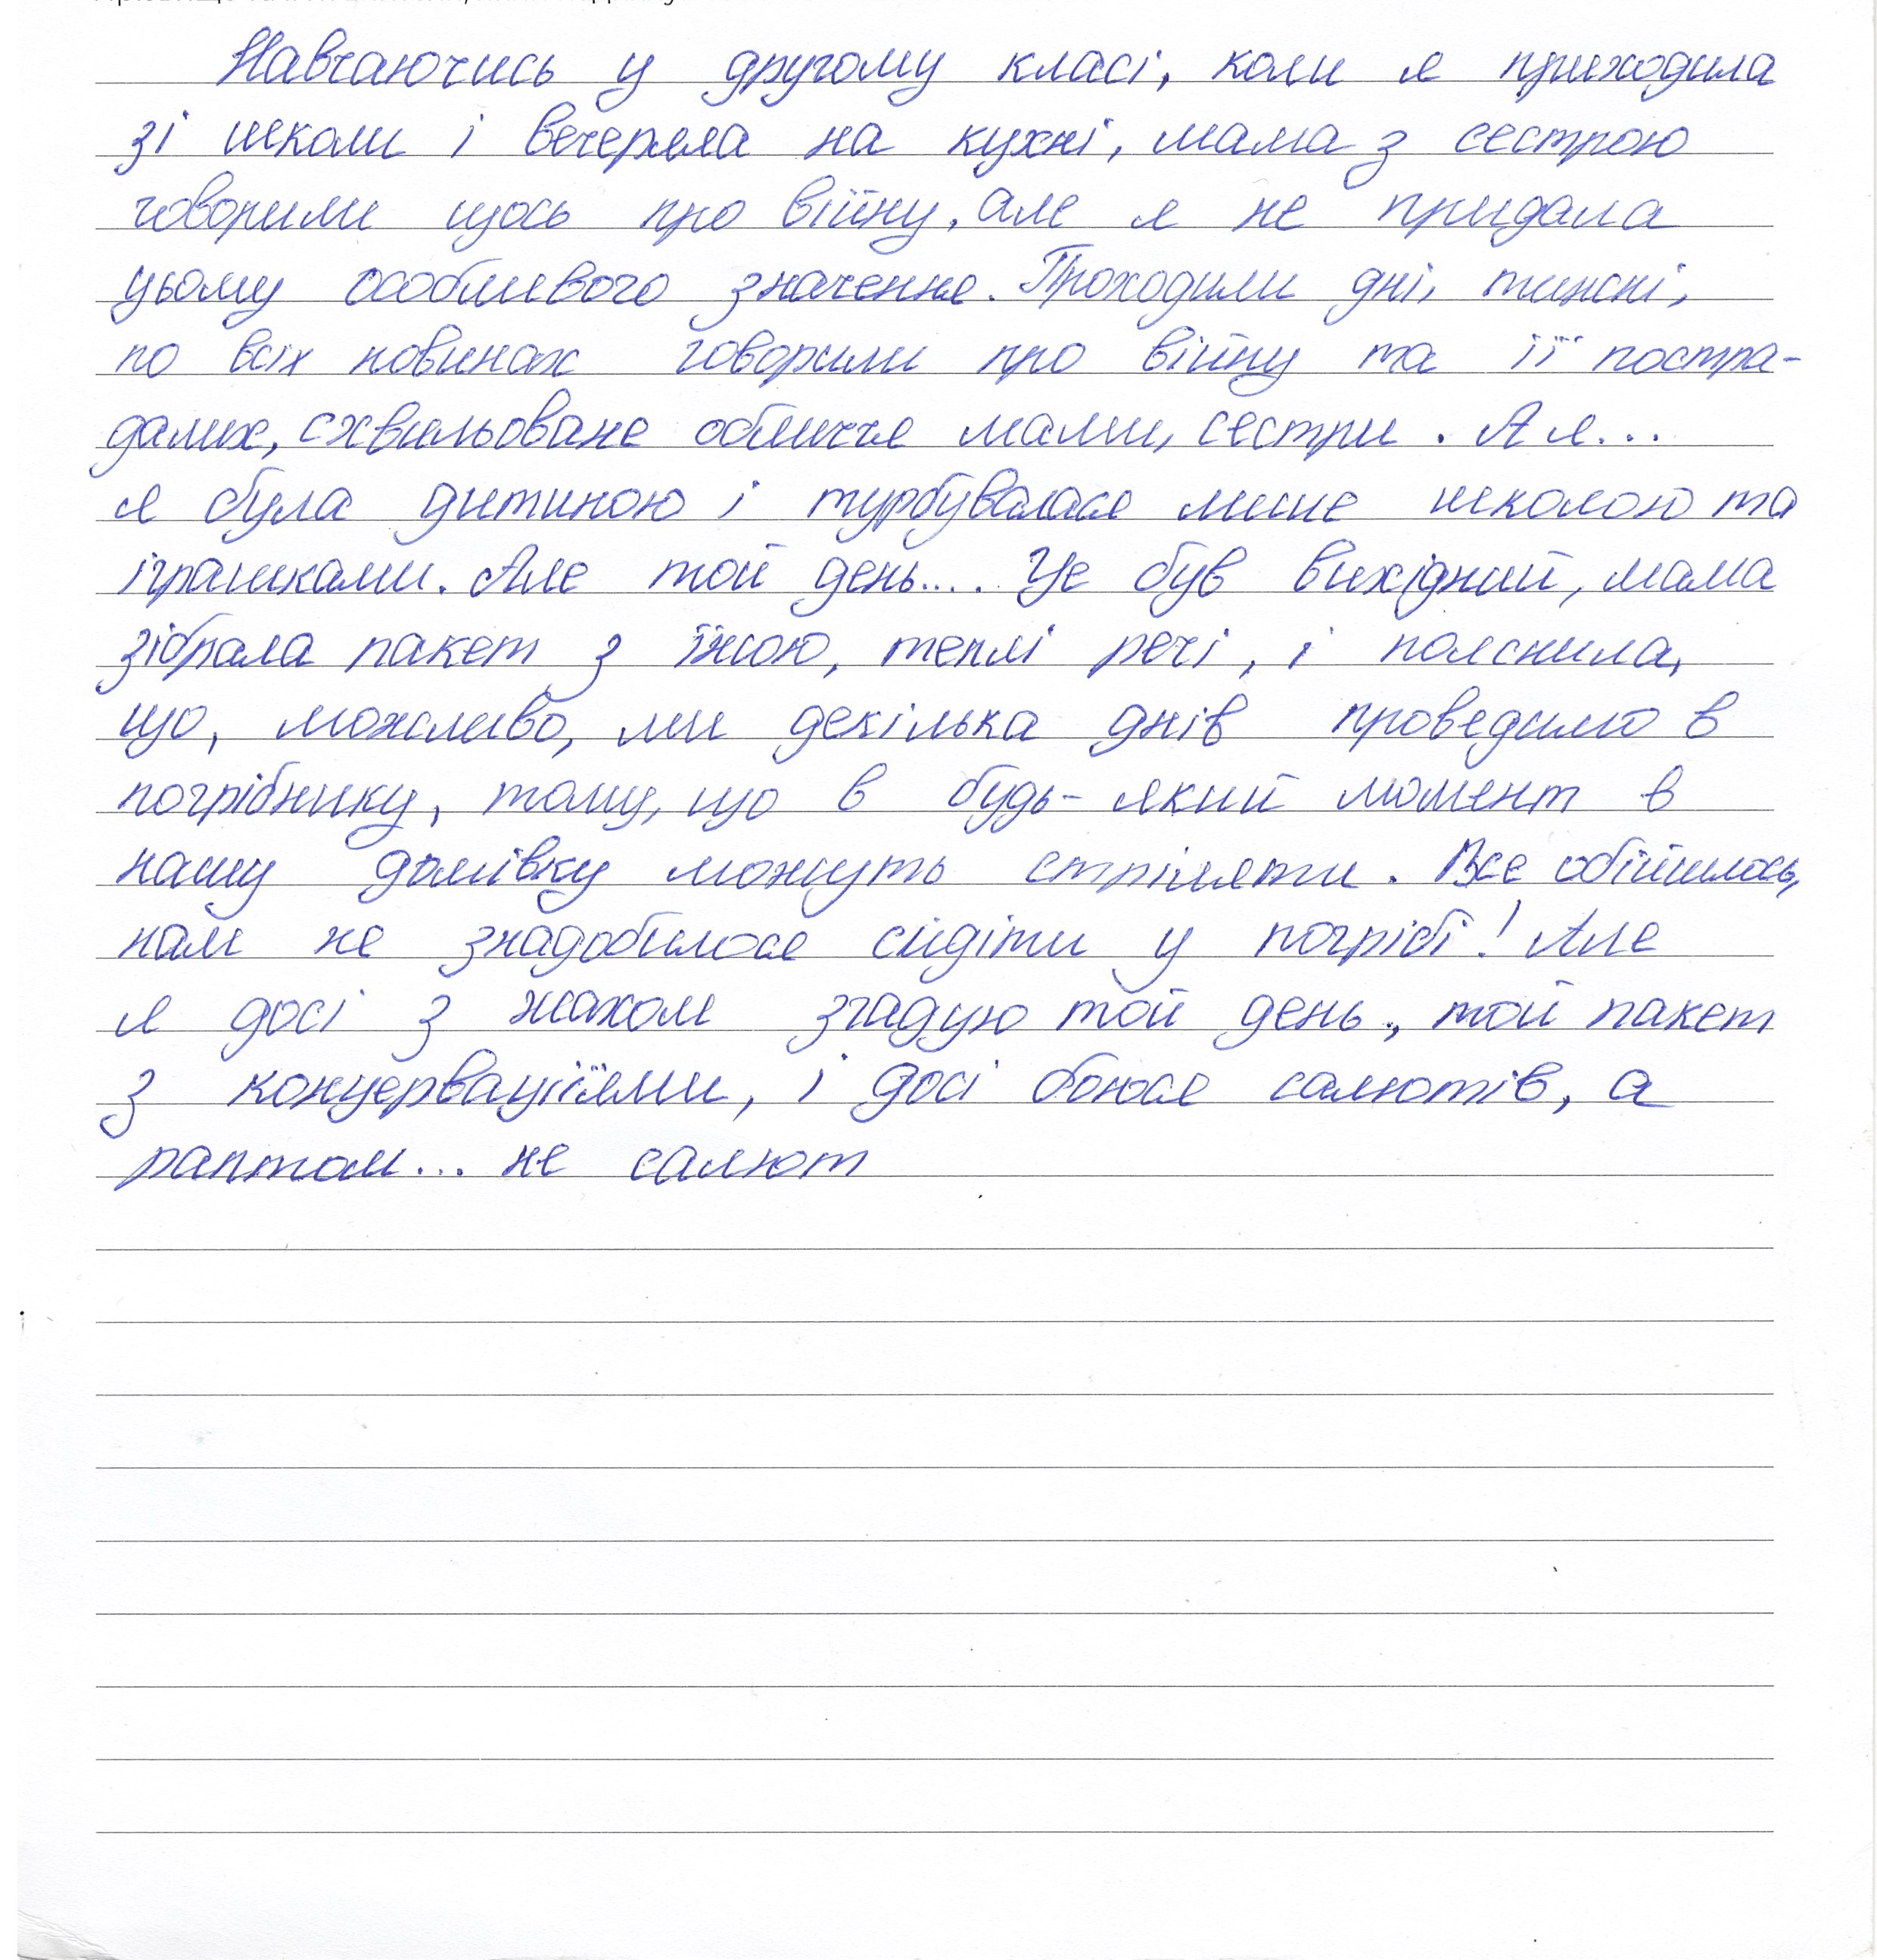 Навчаючись у другому класі, коли я приходила
зі школи і вечеряла на кухні, мама з сестрою
говорили щось про війну, але я не придала
цьому особливого значення. Проходили дні, тижні,
по всіх новинах говорили про війну та її постра-
далих, схвильоване обличчя мами, сестри. А я...
я була дитиною і турбувалася лише школою та
іграшками. Але той день.... Це був вихідний, мама
зібрала пакет з їжою, теплі речі, і пояснила,
що, можливо, ми декілька днів проведимо в
погрібнику, тому, що в будь-який момент в
нашу домівку можуть стріляти. Все обійшлось,
нам не знадобилося сидіти у погрібі! Але
я досі з жахом згадую той день, той пакет
з концерваціїями, і досі боюся салютів, а
раптом... не салют